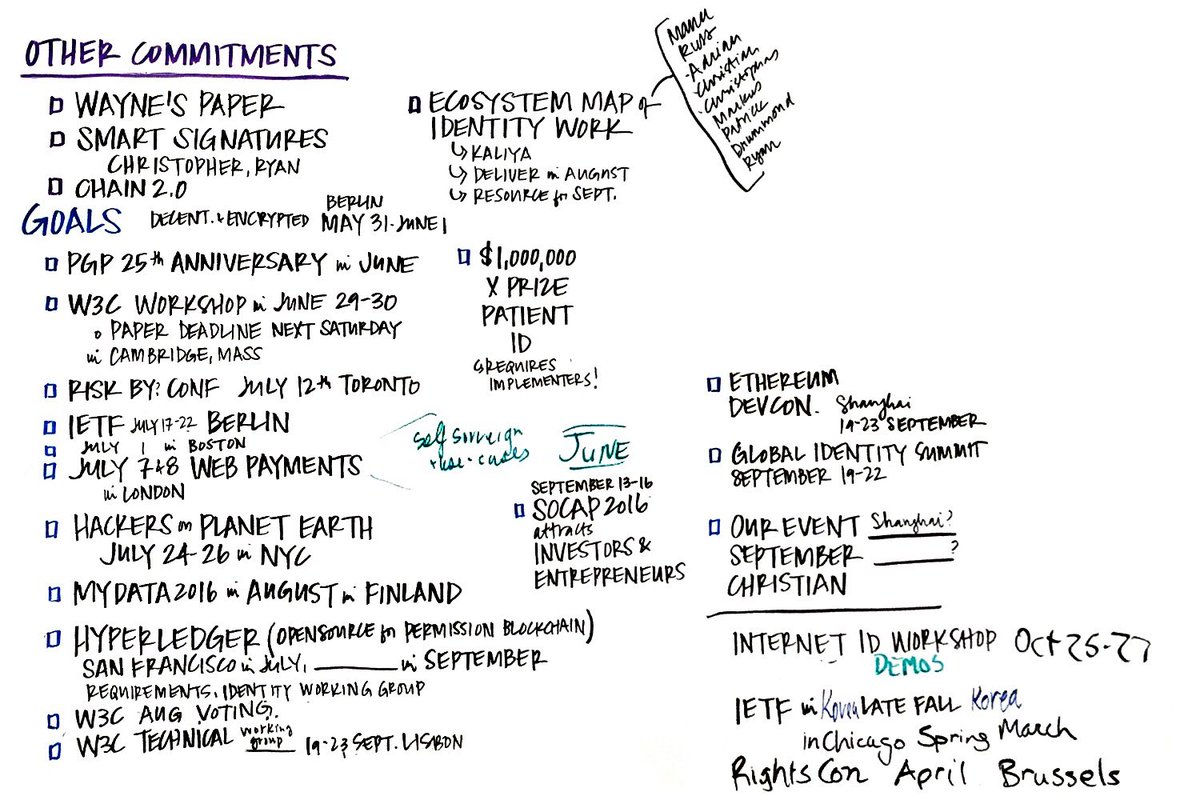 OTHER COMMITMENTS
WAYNE'S PAPER
SMART SIGNATURES
CHRISTOPHER, RYAN
CHAIN 2.0
ECOSYSTEM MAP of
IDENTITY WORK
↳ KALIYA
↳ DELIVER in AUGUST
↳ RESOURCE for SEPT.
Manu
Russ
·Adrian
·Christian
·Christopher
Markus
Patrick
Drummond
Ryan
GOALS
DECENT. + ENCRYPTED
BERLIN
MAY 31-JUNE 1
PGP 25th ANNIVERSARY in JUNE
W3C WORKSHOP in JUNE 29-30
o PAPER DEADLINE NEXT SATURDAY
in CAMBRIDGE, MASS
RISK BY: CONF JULY 12th TORONTO
IETF JULY 17-22 BERLIN
JULY 1 in BOSTON
JULY 7+8 WEB PAYMENTS
in LONDON
HACKERS on PLANET EARTH
JULY 24-26 in NYC
MYDATA2016 in AUGUST in FINLAND
HYPERLEDGER (OPENSOURCE for PERMISSION BLOCKCHAIN)
SAN FRANCISCO in JULY, ______ in SEPTEMBER
REQUIREMENTS, IDENTITY WORKING GROUP
W3C AUG VOTING.
W3C TECHNICAL working group 19-23 SEPT. LISBON
$1,000,000
X PRIZE
PATIENT
ID
↳ REQUIRES
IMPLEMENTERS!
self sovereign
+ use-cases
JUNE
SEPTEMBER 13-16
SOCAP 2016
attracts
INVESTORS &
ENTREPRENEURS
ETHEREUM
DEVCON. Shanghai
19-23 SEPTEMBER
GLOBAL IDENTITY SUMMIT
SEPTEMBER 19-22
OUR EVENT Shanghai?
SEPTEMBER ______?
CHRISTIAN
INTERNET ID WORKSHOP Oct 25-27
DEMOS
IETF in Korea LATE FALL Korea
in Chicago Spring March
RightsCon April Brussels